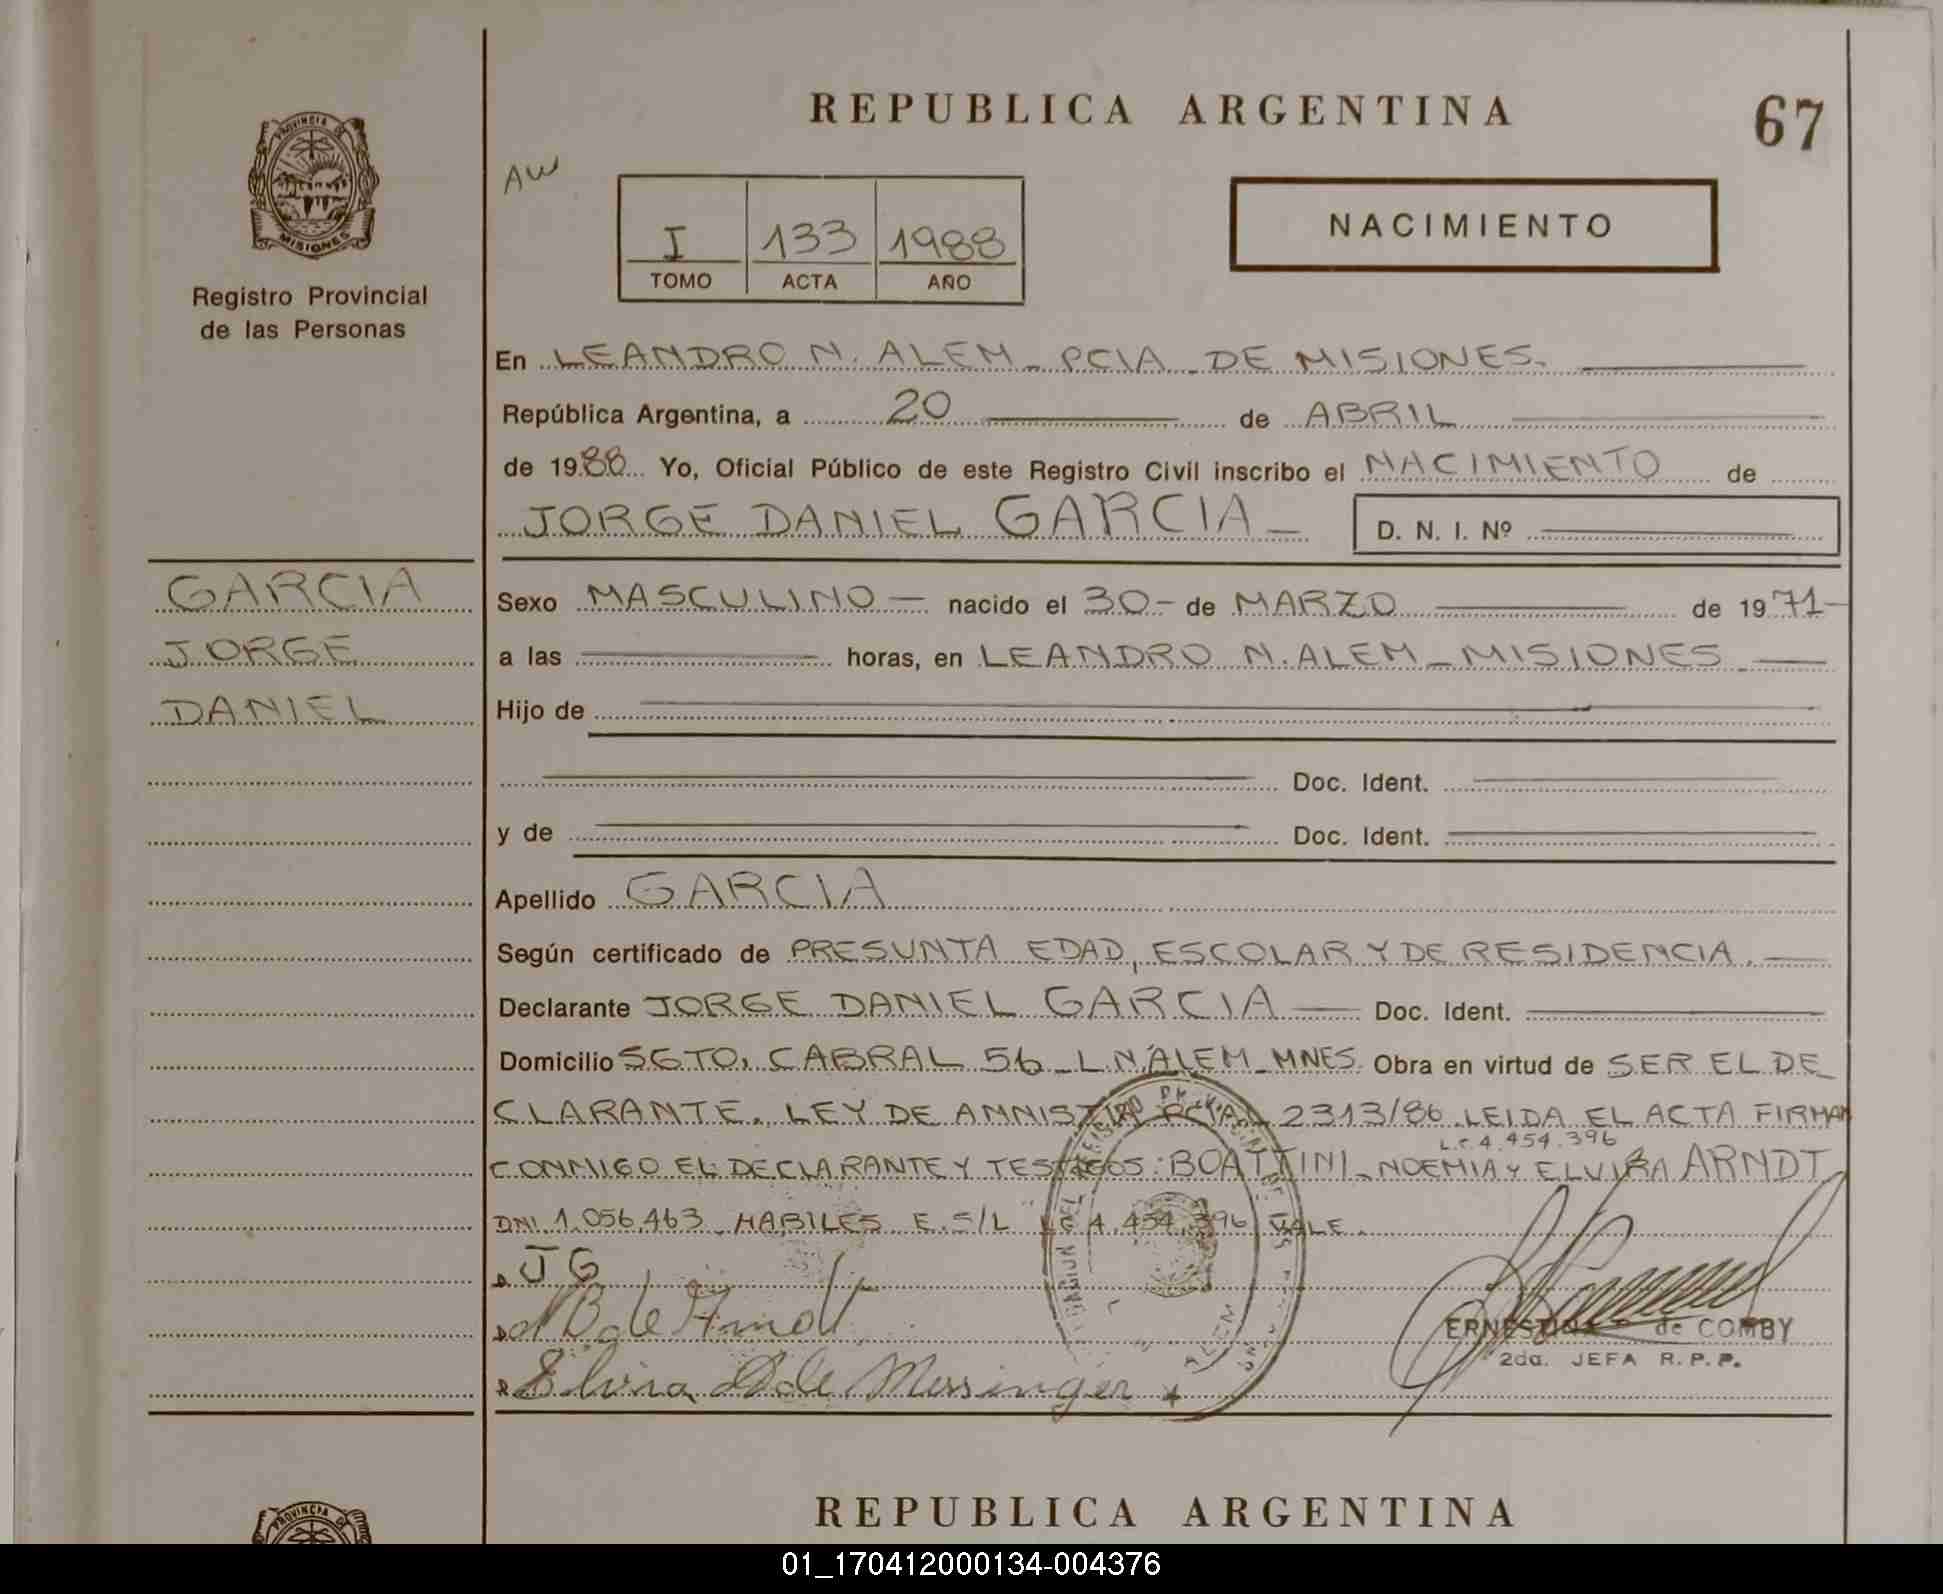 REPUBLICA ARGENTINA
67
AW
PROVINCIA DE
MISIONES
Registro Provincial
de las Personas
I 133 1988
TOMO ACTA AÑO
NACIMIENTO
En LEANDRO N. ALEM - PCIA - DE MISIONES.
República Argentina, a 20 de ABRIL
de 1988 Yo, Oficial Público de este Registro Civil inscribo el NACIMIENTO de
JORGE DANIEL GARCIA - D. N. I. Nº
GARCIA
JORGE
DANIEL
Sexo MASCULINO - nacido el 30 - de MARZO de 1971 -
a las horas, en LEANDRO N. ALEM - MISIONES
Hijo de
Doc. Ident.
y de Doc. Ident.
Apellido GARCIA
Según certificado de PRESUNTA EDAD, ESCOLAR Y DE RESIDENCIA.
Declarante JORGE DANIEL GARCIA Doc. Ident.
Domicilio SGTO. CABRAL 56 - L.N. ALEM - MNES. Obra en virtud de SER EL DE
CLARANTE. LEY DE AMNISTIA PCIAL 2313/86. LEIDA EL ACTA FIRMAN
L.C. 4.454.396
CONMIGO EL DECLARANTE Y TESTIGOS: BOATTINI - NOEMIA Y ELVIRA ARNDT
DNI. 1.056.463 HABILES E.S/L LC 4.454.396 VALE.
J G
NB de Arndt
Elvira A de Messinger
ERNESTINA de COMBY
2da. JEFA R.P.P.
REPUBLICA ARGENTINA
PROVINCIA DE
01_170412000134-004376